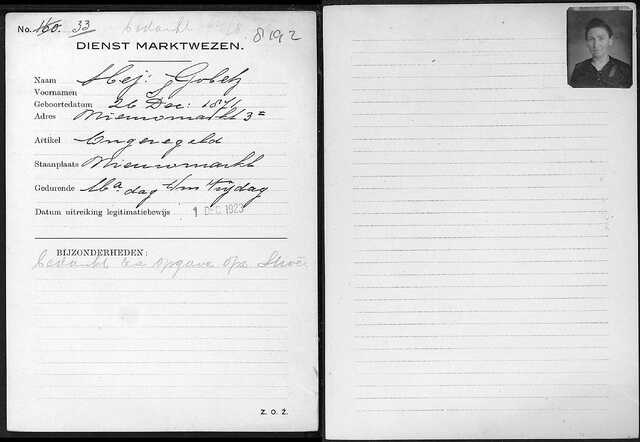 No. 160. 33 Bedankt 8192
DIENST MARKTWEZEN.
Naam Mej: Gobetz
Voornamen S
Geboortedatum 26 Dec: 1871
Adres Nieuwmarkt 3
Artikel Ongeregeld
Staanplaats Nieuwmarkt
Gedurende Ma dag t/m Vrijdag
Datum uitreiking legitimatiebewijs 1 DEC 1923
BIJZONDERHEDEN:
bedankt opgave
Z. O. Z.